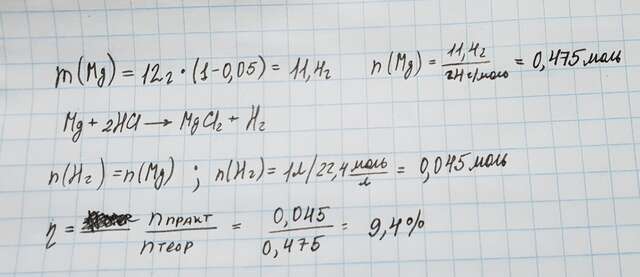 m(Mg) = 12г · (1-0,05) = 11,4г n(Mg) = 11,4г / 24г/моль = 0,475моль
Mg + 2HCl → MgCl₂ + H₂
n(H₂) = n(Mg) ; n(H₂) = 1л/22,4 моль/л = 0,045моль
η = nпракт / nтеор = 0,045 / 0,475 = 9,4%